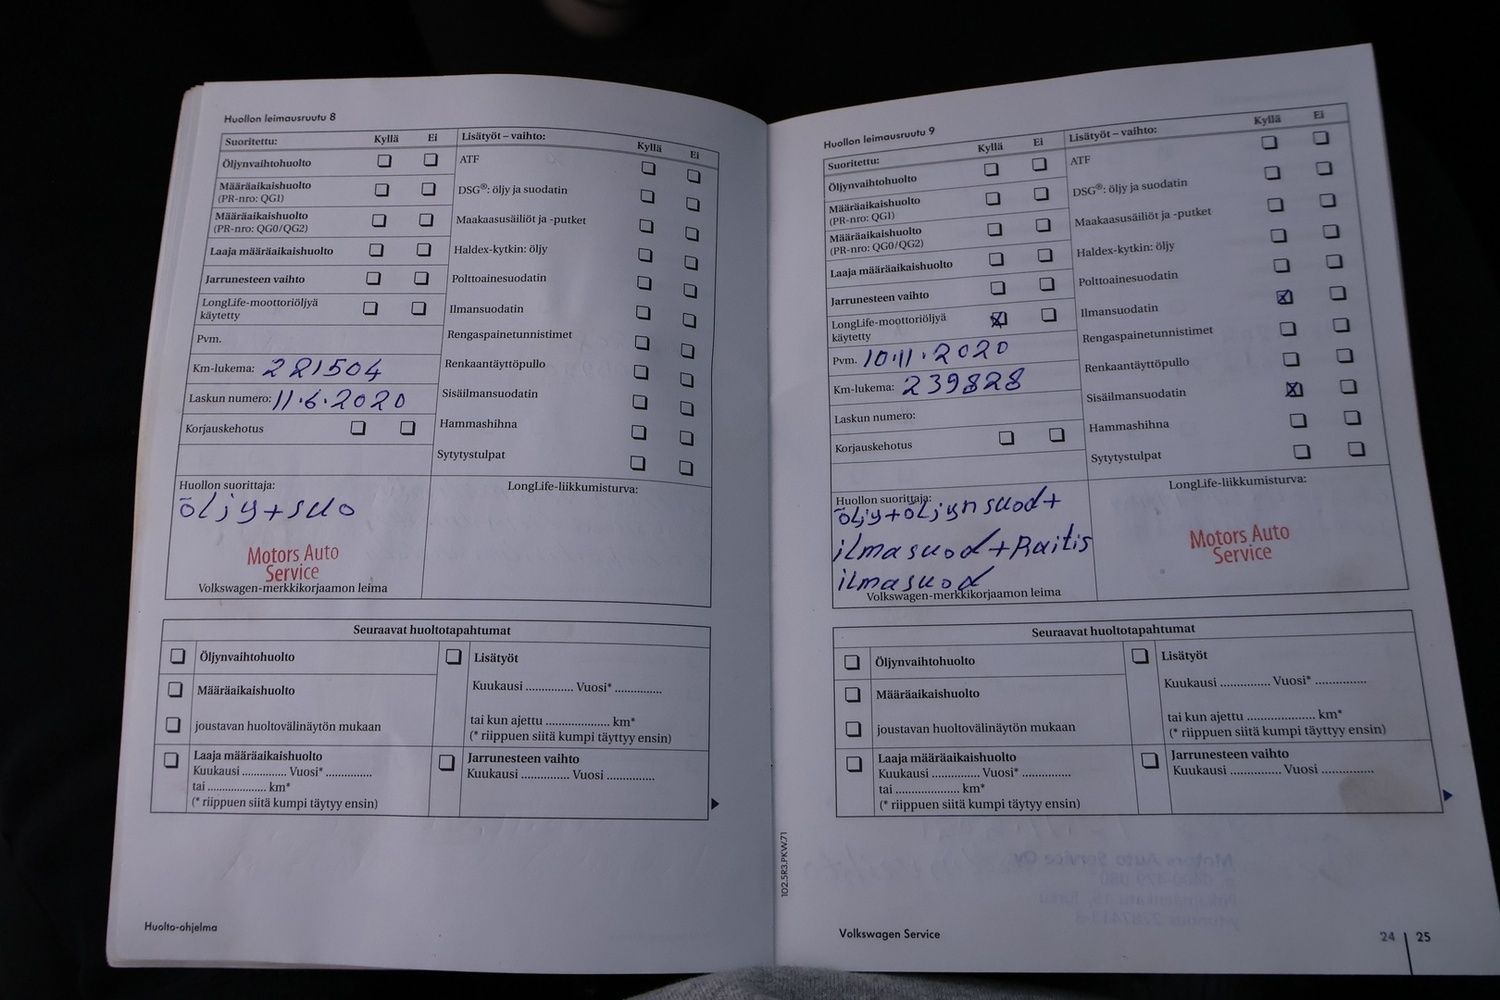 Huollon leimausruutu 8
Suoritettu: Kyllä Ei
Öljynvaihtohuolto
Määräaikaishuolto
(PR-nro: QG1)
Määräaikaishuolto
(PR-nro: QG0/QG2)
Laaja määräaikaishuolto
Jarrunesteen vaihto
LongLife-moottoriöljyä
käytetty
Pvm.
Km-lukema: 221504
Laskun numero: 11.6.2020
Korjauskehotus
Huollon suorittaja:
öljy+suo
Motors Auto
Service
Volkswagen-merkkikorjaamon leima
Lisätyöt – vaihto: Kyllä Ei
ATF
DSG®: öljy ja suodatin
Maakaasusäiliöt ja -putket
Haldex-kytkin: öljy
Polttoainesuodatin
Ilmansuodatin
Rengaspainetunnistimet
Renkaantäyttöpullo
Sisäilmansuodatin
Hammashihna
Sytytystulpat
LongLife-liikkumisturva:
Seuraavat huoltotapahtumat
Öljynvaihtohuolto
Määräaikaishuolto
joustavan huoltovälinäytön mukaan
Laaja määräaikaishuolto
Kuukausi ............... Vuosi* ...............
tai .................... km*
(* riippuen siitä kumpi täytyy ensin)
Lisätyöt
Kuukausi ............... Vuosi* ...............
tai kun ajettu .................... km*
(* riippuen siitä kumpi täyttyy ensin)
Jarrunesteen vaihto
Kuukausi ............... Vuosi ...............
Huolto-ohjelma
102.5R3.PKW.71
Huollon leimausruutu 9
Suoritettu: Kyllä Ei
Öljynvaihtohuolto
Määräaikaishuolto
(PR-nro: QG1)
Määräaikaishuolto
(PR-nro: QG0/QG2)
Laaja määräaikaishuolto
Jarrunesteen vaihto
LongLife-moottoriöljyä
käytetty
Pvm. 10.11.2020
Km-lukema: 239828
Laskun numero:
Korjauskehotus
Huollon suorittaja:
öljy+öljynsuod+
ilmasuod+Raitis
ilmasuod
Volkswagen-merkkikorjaamon leima
Lisätyöt – vaihto: Kyllä Ei
ATF
DSG®: öljy ja suodatin
Maakaasusäiliöt ja -putket
Haldex-kytkin: öljy
Polttoainesuodatin
Ilmansuodatin
Rengaspainetunnistimet
Renkaantäyttöpullo
Sisäilmansuodatin
Hammashihna
Sytytystulpat
LongLife-liikkumisturva:
Motors Auto
Service
Seuraavat huoltotapahtumat
Öljynvaihtohuolto
Määräaikaishuolto
joustavan huoltovälinäytön mukaan
Laaja määräaikaishuolto
Kuukausi ............... Vuosi* ...............
tai .................... km*
(* riippuen siitä kumpi täytyy ensin)
Lisätyöt
Kuukausi ............... Vuosi* ...............
tai kun ajettu .................... km*
(* riippuen siitä kumpi täyttyy ensin)
Jarrunesteen vaihto
Kuukausi ............... Vuosi ...............
Volkswagen Service
24 25